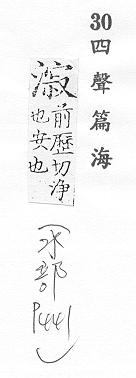 30 四聲篇海
漃 前歷切净
也安也
(水部 P441)